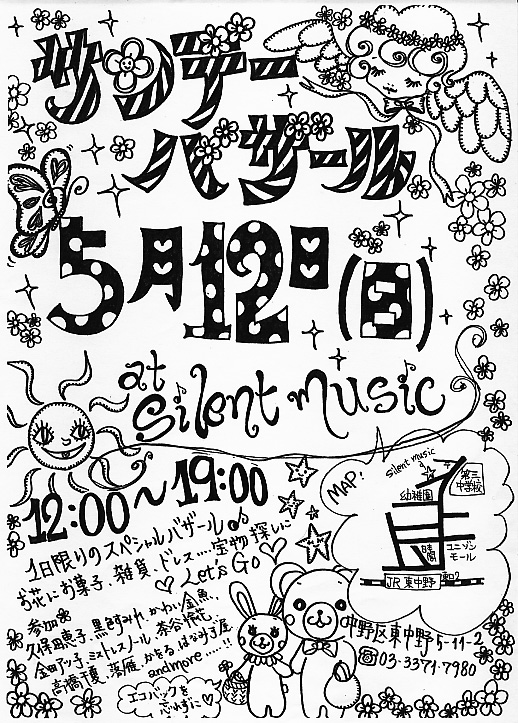 サンデー
バザール
5月12日(日)
at
silent music
12:00〜19:00
1日限りのスペシャルバザール
お花にお菓子、雑貨、ドレス....宝物探しに
Let's Go
参加
久保田恵子、黒色すみれ、かわい金魚、
金田アツ子、ミストレスノール、茶谷怜花、
高橋千夏、落雁、かをる、はなみずき屋
and more......
エコバックを
忘れずに
MAP:
silent music
第三
中学校
幼稚園
ユニゾン
モール
JR 東中野
中野区東中野5-11-2
03-3371-7980